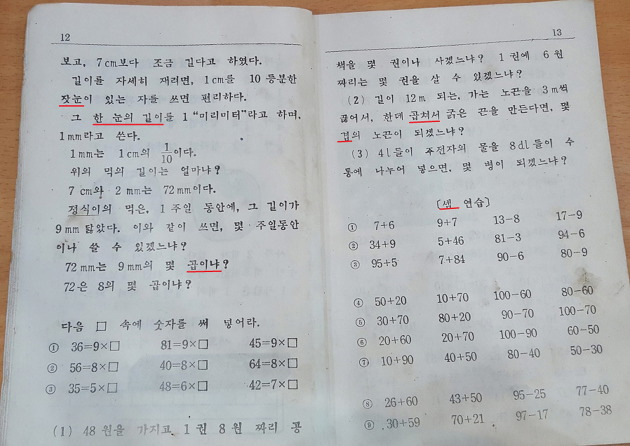 12
보고, 7cm보다 조금 길다고 하였다.
길이를 자세히 재려면, 1cm를 10 등분한
잣눈이 있는 자를 쓰면 편리하다.
그 한 눈의 길이를 1 "미리미터"라고 하며,
1mm라고 쓴다.
1mm는 1cm의 1/10이다.
위의 먹의 길이는 얼마냐?
7 cm와 2 mm는 72mm이다.
정식이의 먹은, 1 주일 동안에, 그 길이가
9mm 닳았다. 이와 같이 쓰면, 몇 주일동안
이나 쓸 수 있겠느냐?
72mm는 9mm의 몇 곱이냐?
72은 8의 몇 곱이냐?
다음 □ 속에 숫자를 써 넣어라.
① 36=9×□ 81=9×□ 45=9×□
② 56=8×□ 40=8×□ 64=8×□
③ 35=5×□ 48=6×□ 42=7×□
(1) 48 원을 가지고, 1 권 8 원 짜리 공
13
책을 몇 권이나 사겠느냐? 1 권에 6 원
짜리는 몇 권을 살 수 있겠느냐?
(2) 길이 12m 되는, 가는 노끈을 3m씩
끊어서, 한데 곱쳐서 굵은 끈을 만든다면, 몇
겹의 노끈이 되겠느냐?
(3) 4l들이 주전자의 물을 8dl들이 수
통에 나누어 넣으면, 몇 병이 되겠느냐?
[셈 연습]
① 7+6 9+7 13-8 17-9
② 34+9 5+46 81-3 94-6
③ 95+5 7+84 90-6 80-9
④ 50+20 10+70 100-60 80-60
⑤ 30+70 80+20 90-70 100-70
⑥ 20+60 20+70 100-90 60-50
⑦ 10+90 40+50 80-40 50-30
⑧ 26+60 43+50 95-25 77-40
⑨ 30+59 70+21 97-17 78-38